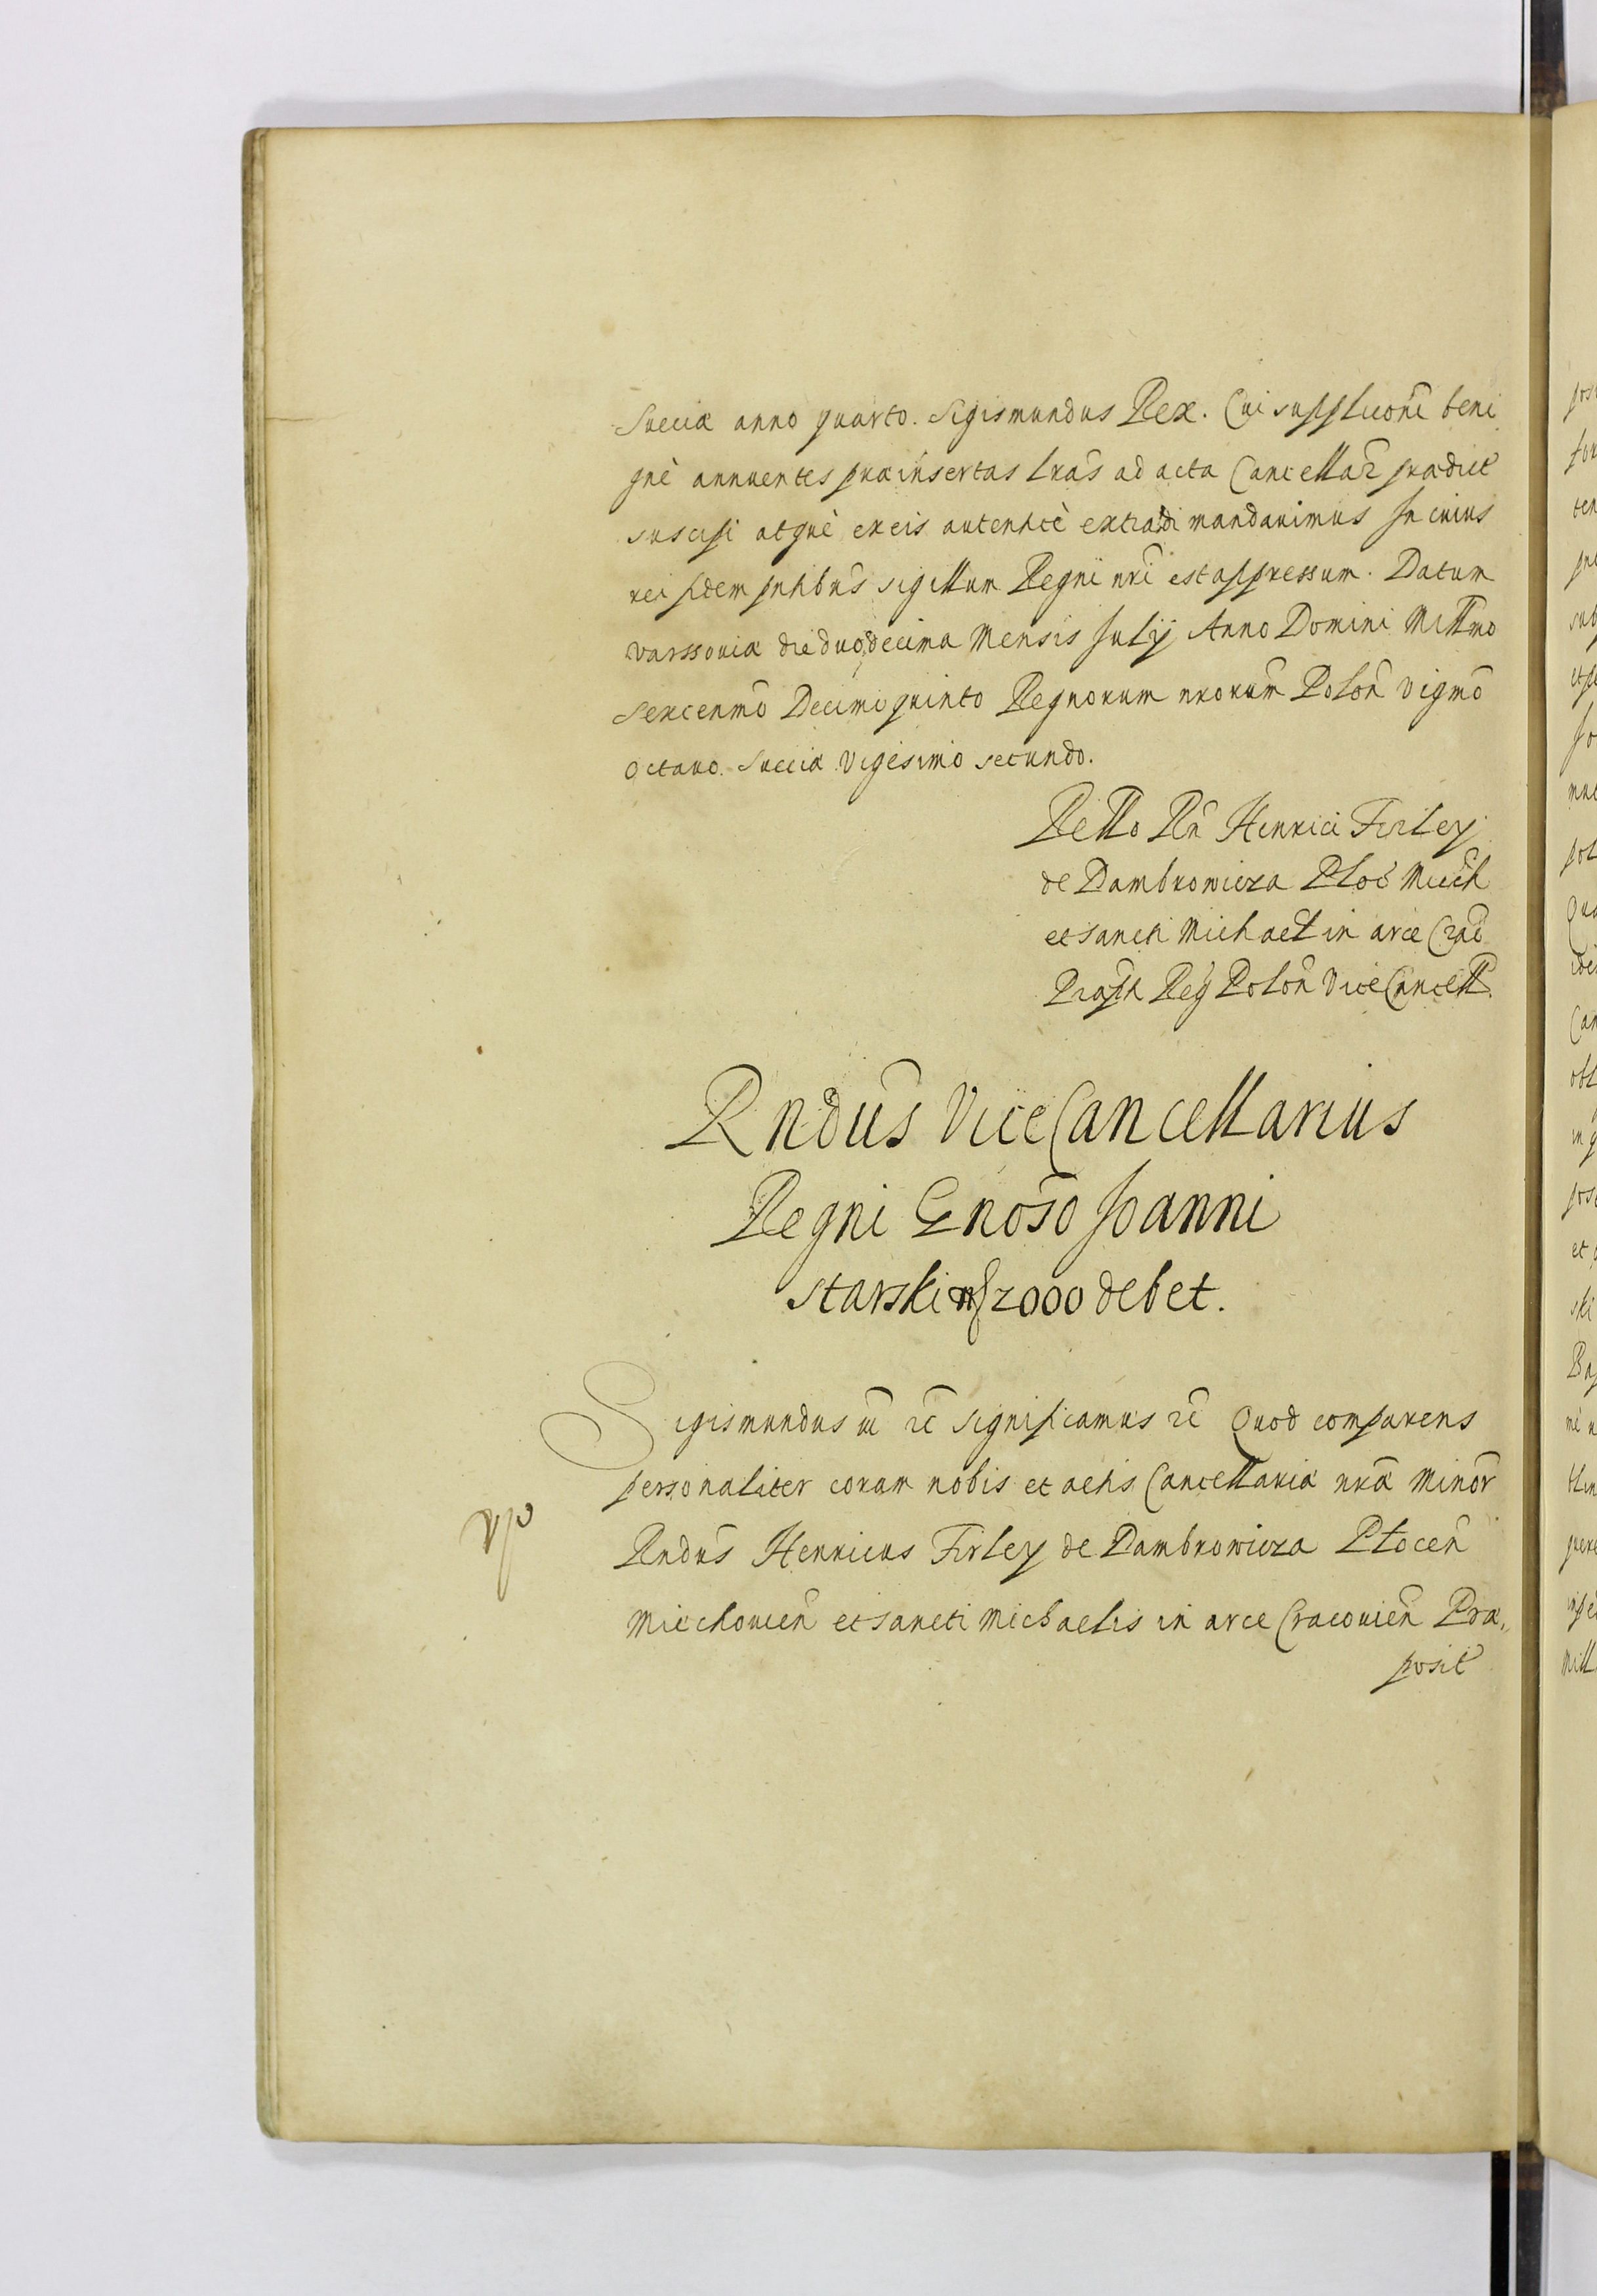 Sueciæ anno quarto. Sigismundus Rex. Cui supplicoñi beni
gnè annuentes præinsertas lrãs ad acta Cancellar̃ prædict̃
suscipi atquè ex eis autenticè extradi mandauimus In cuius
rei fidem pntibũs sigillum Regni nr̃i est appressum. Datum
Varssouiæ die duodecima Mensis Iulij Anno Domini Millmõ
Sexcenmõ Decimo quinto Regnorum nrorũm Polon̄ Vigmõ
Octauo. Sueciæ Vigesimo secundo.
Rello Rñ Henrici Firley
de Dambrowicza Ploc̃ Miech̃
et sancti Michael̃ in arce Crac̃
Præpti Reg̃ Polon̄ ViceCancell̃
Rndũs ViceCancellarius
Regni Gnoso Joanni
Starski 2000 debet.
Sigismundus significamus Quod comparens
personaliter coram nobis et actis Cancellariæ nrã Minor̃
Rndũs Henricus Firley de Dambrowicza Plocen̄
Miechouien̄ et sancti Michaelis in arce Cracouien̄ Præ,
posit̃